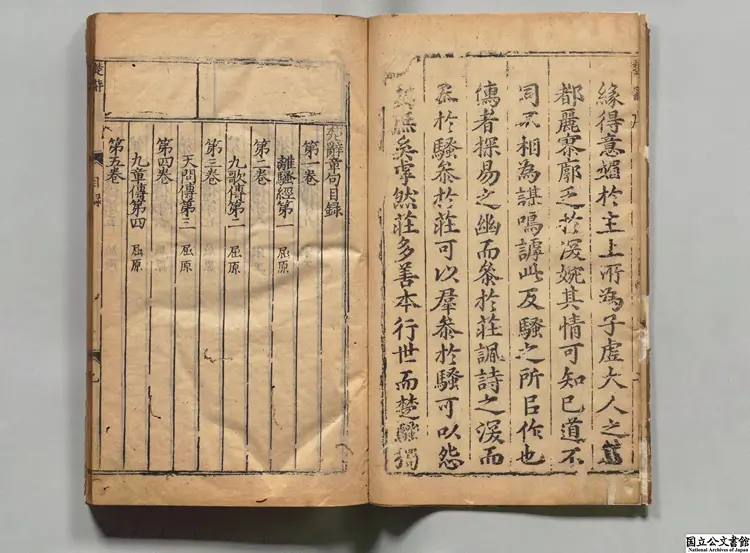 緣得意蹈於主上所為子虛大人之
都麗寥廓乏於深婉其情可知已道不
同不相為謀鳴謔此反騷之所㠯作也
儒者探易之幽而叅於莊諷詩之深而
叅於騷叅於莊可以羣叅於騷可以怨
矣虖然莊多善本行世而楚騷獨
楚辭章句目錄
第一卷
離騷經第一 屈原
第二卷
九歌傳第二 屈原
第三卷
天問傳第三 屈原
第四卷
九章傳第四 屈原
第五卷
楚辭
目錄
国立公文書館
National Archives of Japan